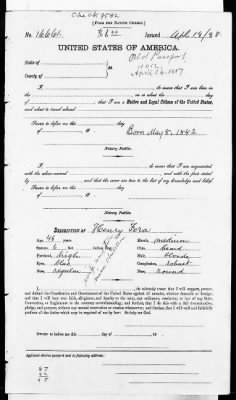 [FOR NATIVE CITIZEN.]
No. 16661.
Issued Apl. 19/88
UNITED STATES OF AMERICA.
State of
County of
Old Passport,
April 26. 1887
I, do swear that I was born in
the , on or about the day of
; that I am a Native and Loyal Citizen of the United States,
and about to travel abroad
Sworn to before me this day
of
Born May 8. 1842
Notary Public.
I, do swear that I am acquainted
with the above-named and with the facts stated
by and that the same are true to the best of my knowledge and belief.
Sworn to before me this day
of
Notary Public.
DESCRIPTION OF Henry
Age, 46 years
Mouth, medium
Stature, 5 feet inches
Chin,
Forehead, high
Hair, blonde
Eyes, blue
Complexion, robust
Nose, regular
Face, round
I, , do solemnly swear that I will support, protect,
and defend the Constitution and Government of the United States against all enemies, whether domestic or foreign;
and that I will bear true faith, allegiance, and loyalty to the same, any ordinance, resolution, or law of any State,
Convention, or Legislature to the contrary notwithstanding; and further, that I do this with a full determination,
pledge, and purpose, without any mental reservation or evasion whatsoever; and further, that I will well and faithfully
perform all the duties which may be required of me by law: So help me God.
Sworn to before me this day of
Notary Public.
Applicant desires passport sent to following address: